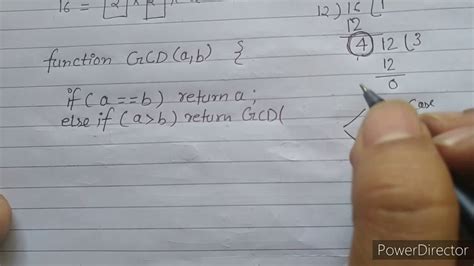 16 = 2 x 2
12) 16 (1
12
4 12 (3
12
0
function GCD(a,b) {
if (a==b) return a;
else if (a>b) return GCD(
Case
PowerDirector